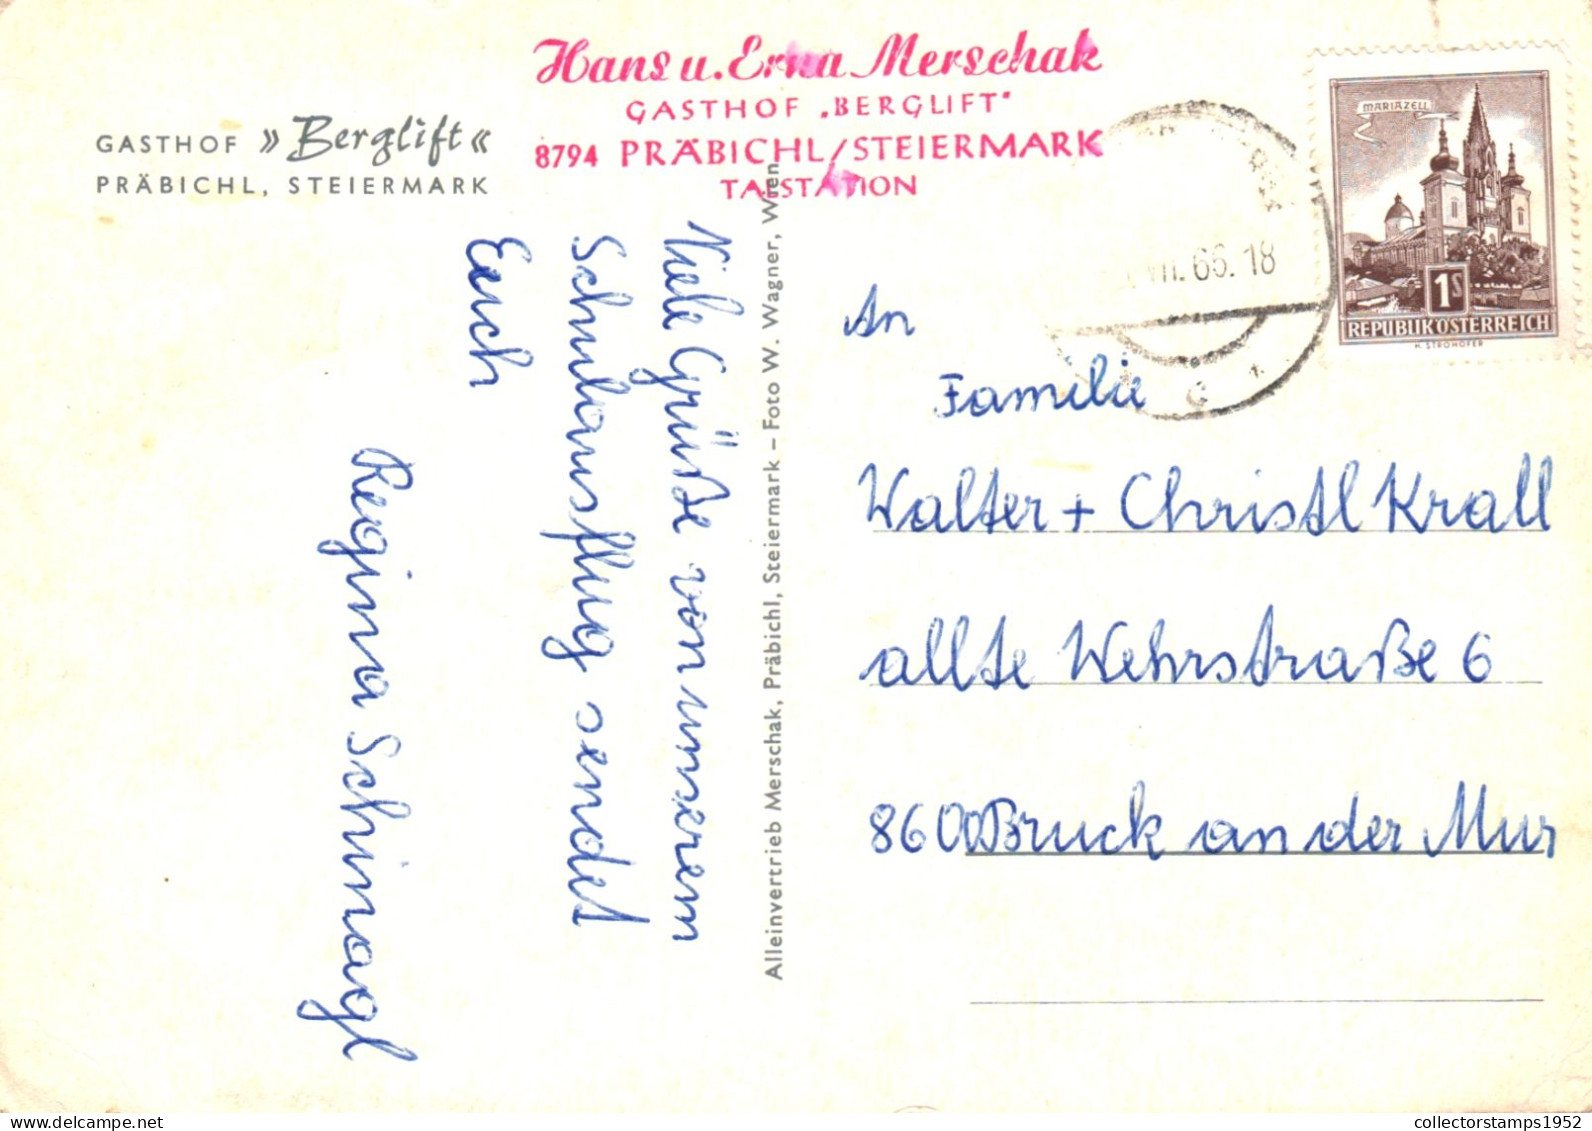 Hans u. Erna Merschak
GASTHOF „BERGLIFT"
8794 PRÄBICHL/STEIERMARK
TALSTATION
GASTHOF »Berglift«
PRÄBICHL, STEIERMARK
Viele Grüße von unserem
Schulausflug sendet
Euch
Regina Schinnagl
Alleinvertrieb Merschak, Präbichl, Steiermark – Foto W. Wagner, Wien
MARIAZELL
1S
REPUBLIK ÖSTERREICH
H. STROHOFER
VII. 66. 18
An
Familie
Walter + Christl Krall
allte Wehrstraße 6
8600 Bruck an der Mur
collectorstamps1952